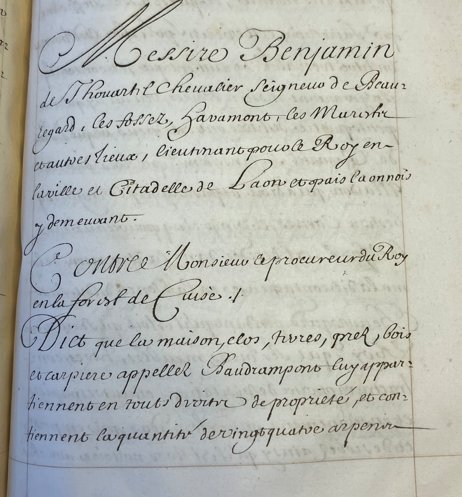 Messire Benjamin
de Thouartil Chevalier Seigneur de Beau-
regard, les fossez, havamont, les Murocher
et autres lieux, lieutenant pour le Roy en
la ville et Citadelle de Laon et païs laonnois
y demeurant.
Contre Monsieur le procureur du Roy
en la forest de Cuise ./.
Dict que la maison, clos, terres, prez, bois
et carpiere appellez Baudrampont luy appar-
tiennent en touts droitz de proprieté, et con-
tiennent la quantité de vingt quatre arpens